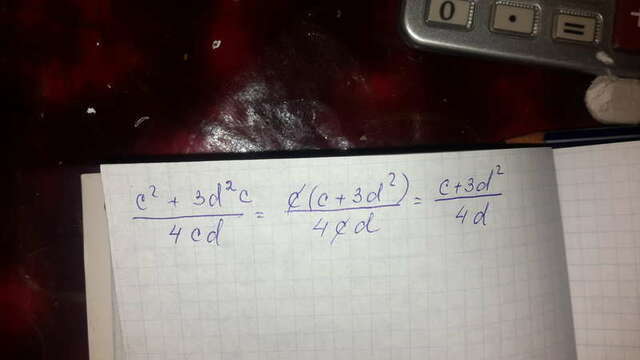 0 · =
(c² + 3d²c)/(4cd) = (c̸(c + 3d²))/(4c̸d) = (c+3d²)/(4d)